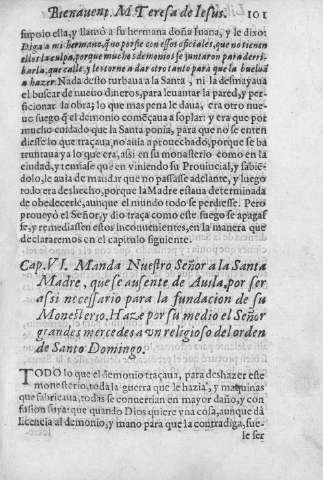 Bienauent. M. Teresa de Iesus. 101
supolo ella, y llamò a su hermana doña Iuana, y le dixo:
Diga a mi hermano, que no porfie con essos oficiales, que no tienen
ellos la culpa, porque muchos demonios se juntaron para derri-
barla, que calle, y les torne a dar otro tanto para que la bueluã
a hazer. Nada desto turbaua a la Santa, ni la desmayaua
el buscar de nueuo dineros, para leuantar la pared, y per-
ficionar la obra; lo que mas pena le daua, era otro nue-
uo fuego q̃ el demonio començaua a soplar: y era que por
mucho cuidado que la Santa ponia, para que no se enten
diesse lo que traçaua, no auia aprouechado, porque se ba
rruntaua ya lo que era, assi en su monasterio como en la
ciudad, y temiase que en viniendo su Prouincial, y sabiẽ-
dolo, le auia de mandar que no passasse adelante, y luego
todo era deshecho, porque la Madre estaua determinada
de obedecerle, aunque el mundo todo se perdiesse. Pero
proueyò el Señor, y dio traça como este fuego se apagas
se, y remediassen estos inconuenientes, en la manera que
declararemos en el capitulo siguiente.
Cap. VI. Manda Nuestro Señor a la Santa
Madre, que se ausente de Auila, por ser
assi necessario para la fundacion de su
Monesterio. Haze por su medio el Señor
grandes mercedes a vn religioso del orden
de Santo Domingo.
TODO lo que el demonio traçaua, para deshazer este
monesterio, toda la guerra que le hazia, y maquinas
que fabricaua, todas se conuertian en mayor daño, y con
fusion suya: que quando Dios quiere vna cosa, aunque dà
licencia al demonio, y mano para que la contradiga, sue-
le ser